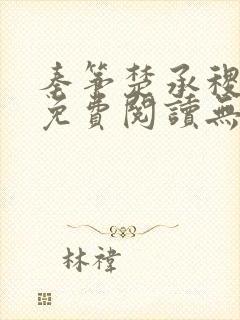 秦笙楚承稷
免費閱讀無
林禕